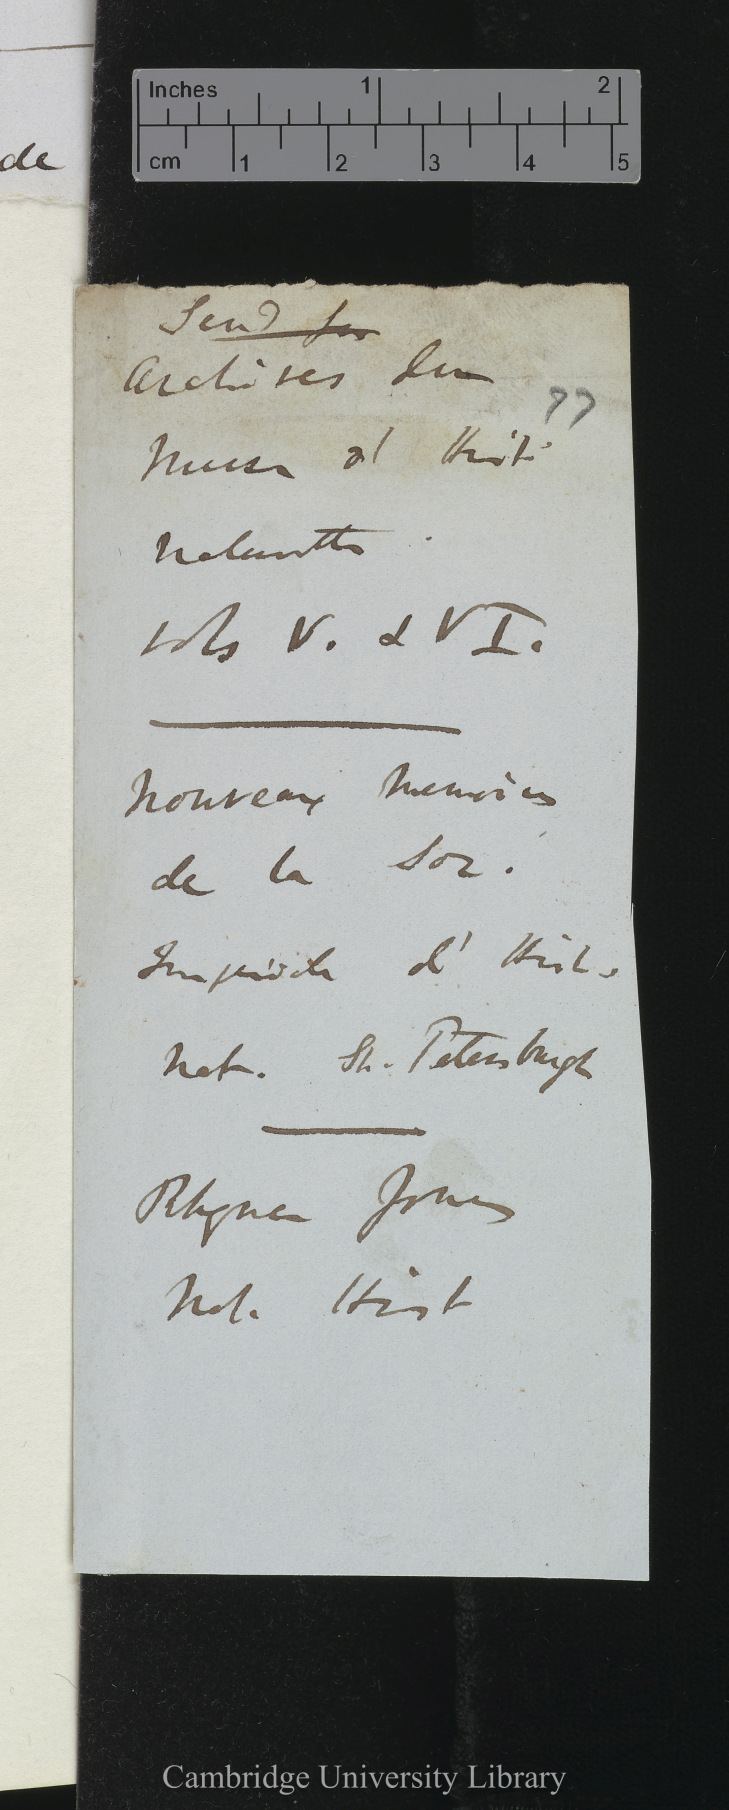 Inches 1 2
cm 1 2 3 4 5
de
Send for
Archives du
77
Museu d' Hist.
Naturelle.
vols V. & VI.
Nouveaux Memoires
de la Soc.
Imperiale d' Hist.
Nat. St. Petersburgh
Jones
Nat. Hist
Cambridge University Library